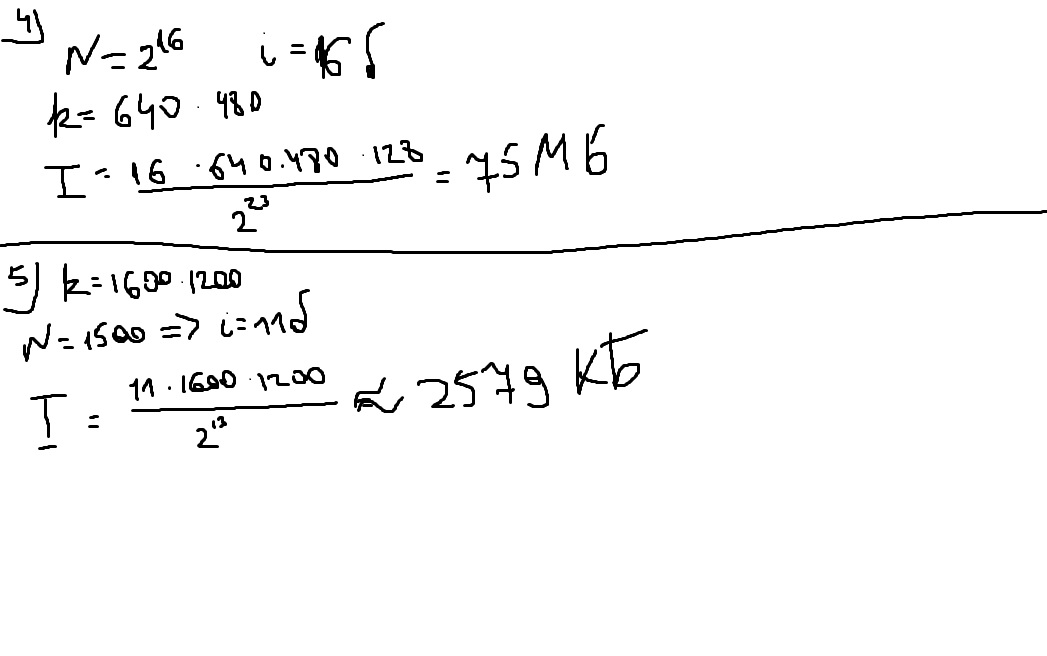 4)
N = 2^16 i = 16 б
k = 640 · 480
I = (16 · 640 · 480 · 128) / 2^23 = 75 Мб
5) k = 1600 · 1200
N = 1500 => i = 11 б
I = (11 · 1600 · 1200) / 2^13 ≈ 2579 Кб